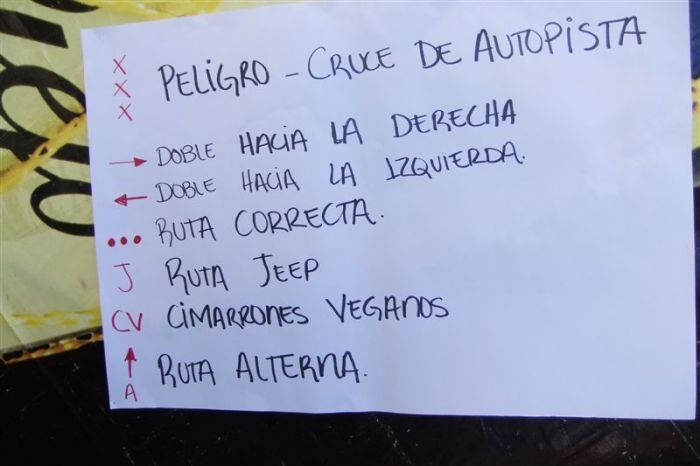 X X X PELIGRO - CRUCE DE AUTOPISTA
→ DOBLE HACIA LA DERECHA
← DOBLE HACIA LA IZQUIERDA.
••• RUTA CORRECTA.
J RUTA JEEP
CV CIMARRONES VEGANOS
↑ A RUTA ALTERNA.